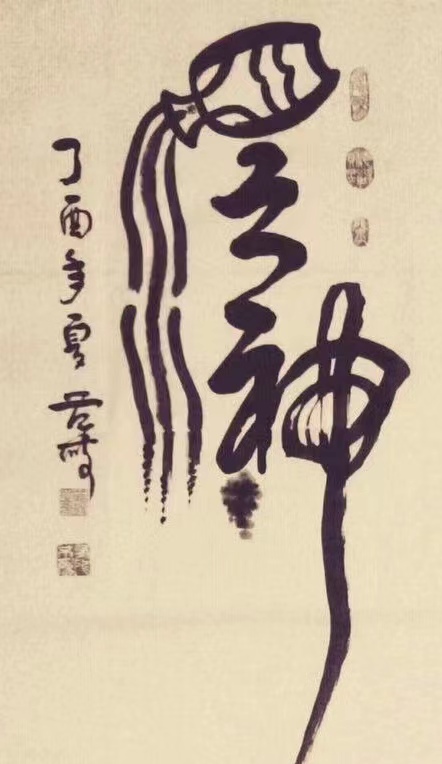 酒之神
丁酉年夏